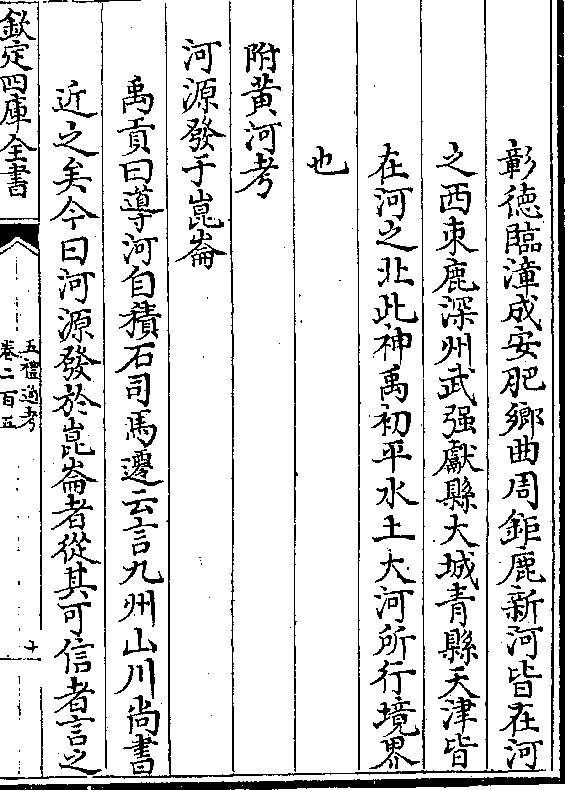 彰德臨漳成安肥鄉曲周鉅鹿新河皆在河
之西束鹿深州武强獻縣大城青縣天津皆
在河之北此神禹初平水土大河所行境界
也
附黄河考
河源發于崑崙
禹貢曰導河自積石司馬遷云言九州山川尚書
近之矣今曰河源發於崑崙者從其可信者言之
欽定四庫全書
五禮通考
卷二百五
十